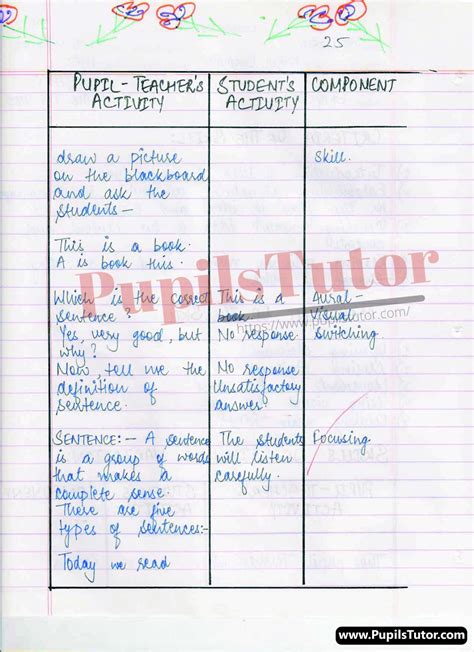 25
PUPIL-TEACHER'S ACTIVITY
STUDENT'S ACTIVITY
COMPONENT
draw a picture
on the blackboard
and ask the
students -
skill.
This is a book.
A is book this.
PupilsTutor
https://www.pupilstutor.com
Which is the correct
sentence?
This is a
book.
Aural-
Visual
switching.
Yes, very good, but
why?
No response
Now, tell me the
definition of
sentence.
No response
Unsatisfactory
answer.
SENTENCE:- A sentence
is a group of words
that makes a
complete sense.
There are five
types of sentences:-
The students
will listen
carefully.
Focusing.
Today we read
www.PupilsTutor.com